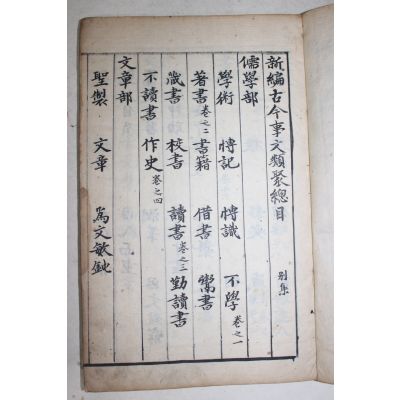 新編古今事文類聚總目 別集
儒學部
學術 博記 博識 不學 卷之一
著書 卷之二 書籍 借書 鬻書
藏書 校書 讀書 卷之三 勤讀書
不讀書 作史 卷之四
文章部
聖製 文章 爲文敏鈍